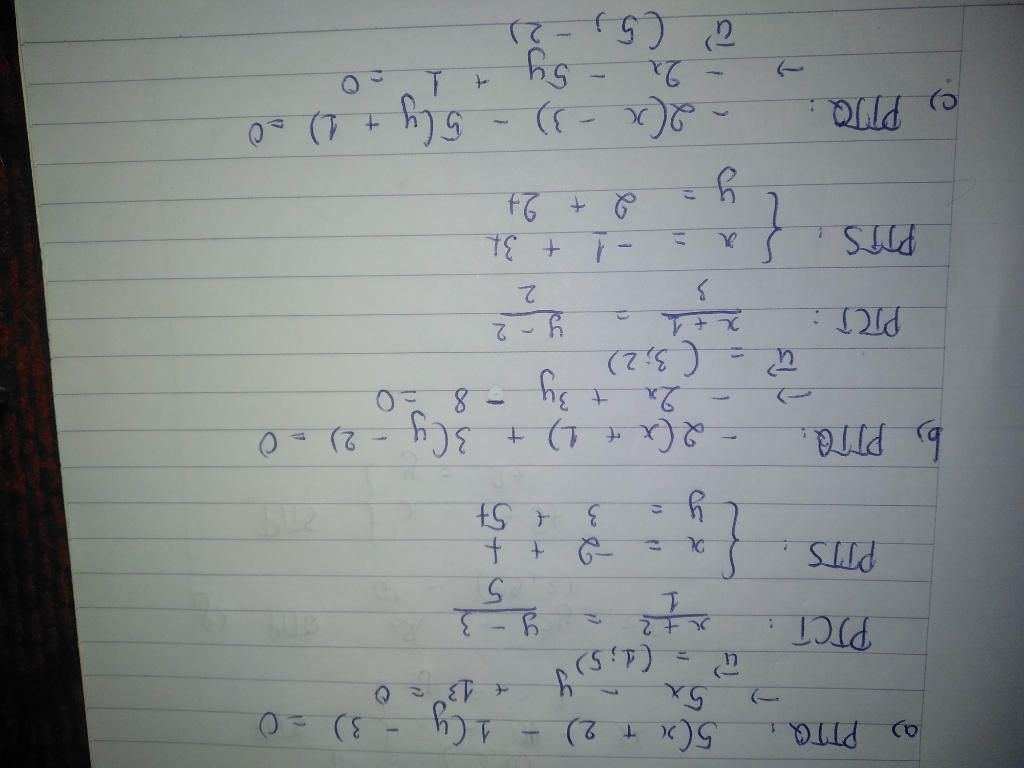 a) PTTQ: 5(x + 2) - 1(y - 3) = 0
→ 5x - y + 13 = 0
u⃗ = (1; 5)
PTCT: (x + 2)/1 = (y - 3)/5
PTTS: { x = -2 + t
y = 3 + 5t
b) PTTQ: -2(x + 1) + 3(y - 2) = 0
→ -2x + 3y - 8 = 0
u⃗ = (3; 2)
PTCT: (x + 1)/3 = (y - 2)/2
PTTS: { x = -1 + 3t
y = 2 + 2t
c) PTTQ: -2(x - 3) - 5(y + 1) = 0
→ -2x - 5y + 1 = 0
u⃗ (5; -2)